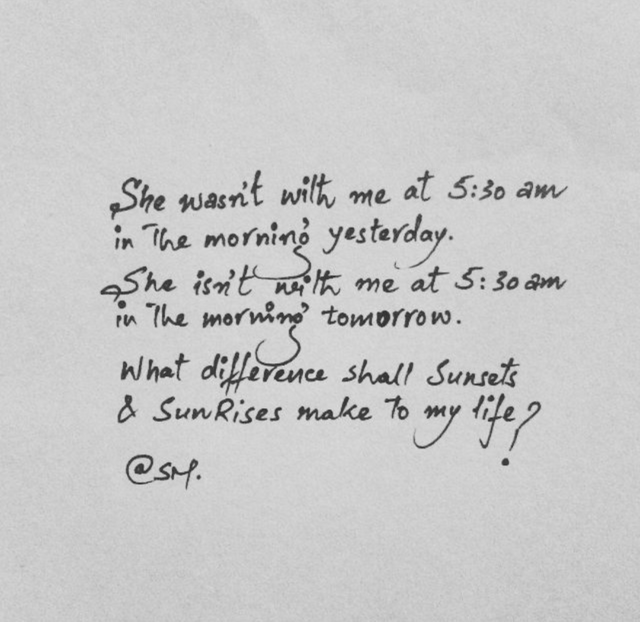 She wasn't with me at 5:30 am
in The morning yesterday.
She isn't with me at 5:30 am
in The morning tomorrow.
What difference shall Sunsets
& SunRises make to my life?
@SM.